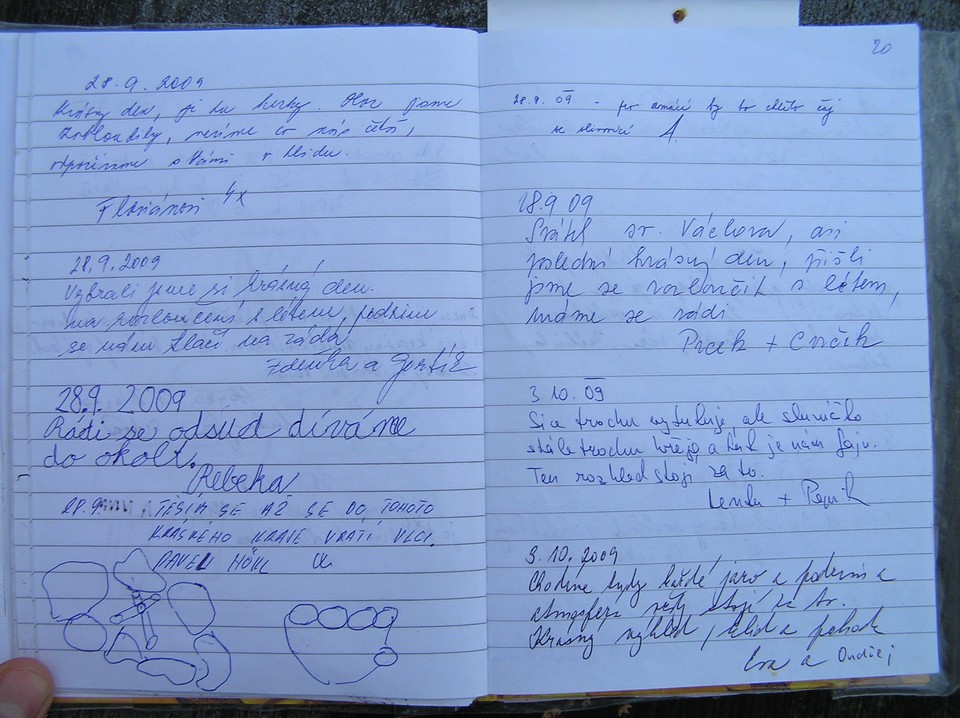 28.9.2009
Krásný den, je tu hezky. Hor jsme
zabloudily, nevíme co nás čeká,
odpočíváme s Vámi v klidu.
Floriánovi 4x
28.9.2009
Vybrali jsme si krásný den.
na rozloučení s létem, podzim
se nám tlačí na záda
Zdeňka a
28.9. 2009
Rádi se odsud díváme
do okolí.
Rebeka
28.9. TĚŠÍM SE AŽ SE DO TOHOTO
KRÁSNÉHO KRAJE VRÁTÍ VLCI.
PAVEL
20
28.9. 09 - by to chtělo čaj
se slivovicí
28.9 09
Svátek sv. Václava, asi
poslední krásný den, přišli
jsme se rozloučit s létem,
máme se rádi
Prcek + Cvrček
3.10. 09
Sice trochu vyfukuje, ale sluníčko
stále trochu hřeje a tak je nám fajn.
Ten rozhled stojí za to.
Lenka + Pepík
3.10.2009
Chodíme tudy každé jaro a podzim a
atmosféra vždy stojí za to.
Krásný výhled, klid a pohoda
Iva a Ondřej